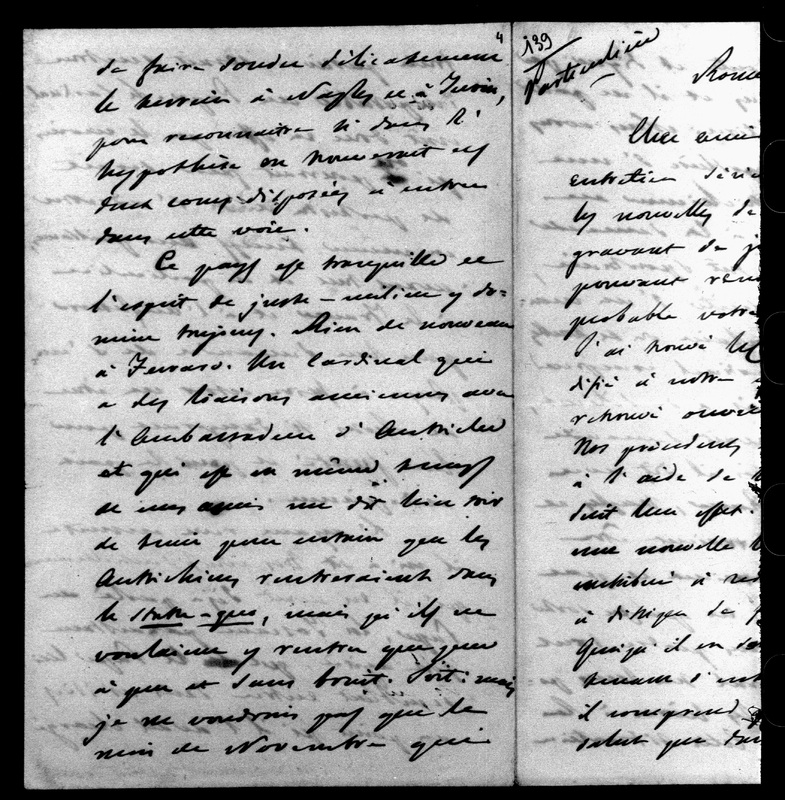 4
de faire sonder délicatement
le terrain à Naples et à Turin,
pour reconnaitre si dans l'
hypothèse on trouverait ces
deux cours disposées à entrer
dans cette voie.
Le pays est tranquille et
l'esprit de juste-milieu y do=
mine toujours. Rien de nouveau
à Ferrare. Un Cardinal qui
a des liaisons anciennes avec
l'Ambassadeur d'Autriche
et qui est en même temps
de mes amis me dit hier soir
de tenir pour certain que les
Autrichiens rentreraient dans
le statu-quo, mais qu'ils ne
voulaient y rentrer que peu
à peu et sans bruit. Soit: mais
je ne voudrais pas que le
mois de Novembre qui
139
Particulière
Rome
Cher ami
entretien
les nouvelles de
gravant de
pouvant
probable votre
J'ai trouvé les
déjà à notre
retrouvé
Nos précédents
à l'aide de
doit bon effet.
une nouvelle
contribué à
à dissiper de
Quoiqu'il en
tenant
il comprend
salut que dans